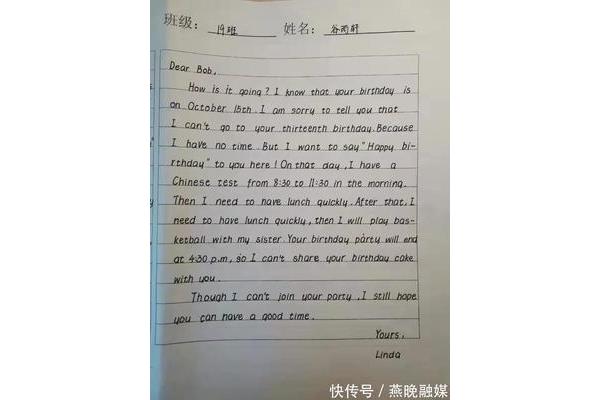 班级： 19班 姓名： 谷雨轩
Dear Bob,
How is it going? I know that your birthday is
on October 15th. I am sorry to tell you that
I can't go to your thirteenth birthday. Because
I have no time. But I want to say "Happy bi-
rthday" to you here! On that day, I have a
Chinese test from 8:30 to 11:30 in the morning.
Then I need to have lunch quickly. After that, I
need to have lunch quickly, then I will play bas-
ketball with my sister. Your birthday party will end
at 4:30 p.m, so I can't share your birthday cake
with you.
Though I can't join your party, I still hope
you can have a good time.
Yours,
Linda
快传号 / 燕晚融媒